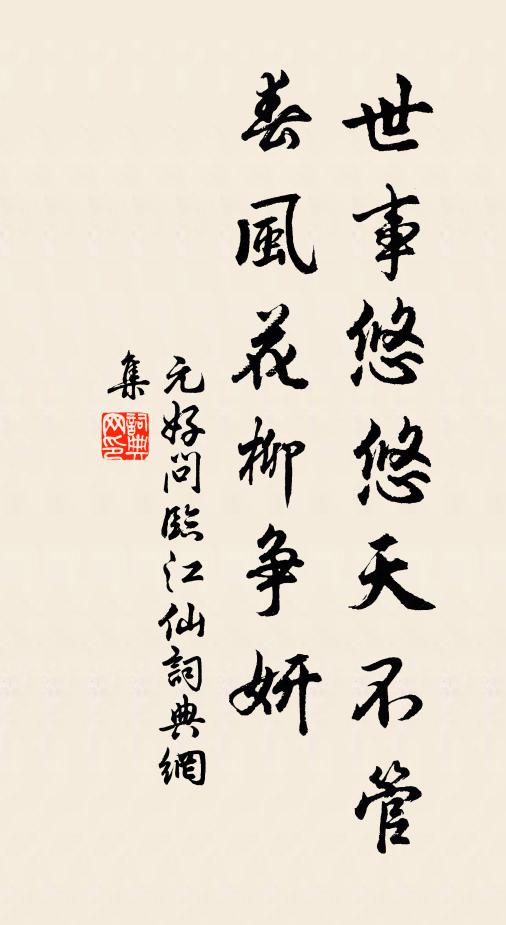 世事悠悠天不管
春風花柳争妍
元好问臨江仙詞典網
集
詞典網印